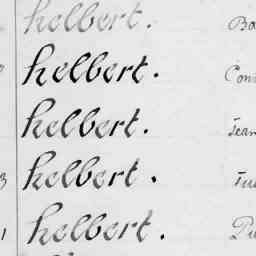 helbert. Ba
helbert. Com
helbert. Jean
3 helbert.
1 helbert.